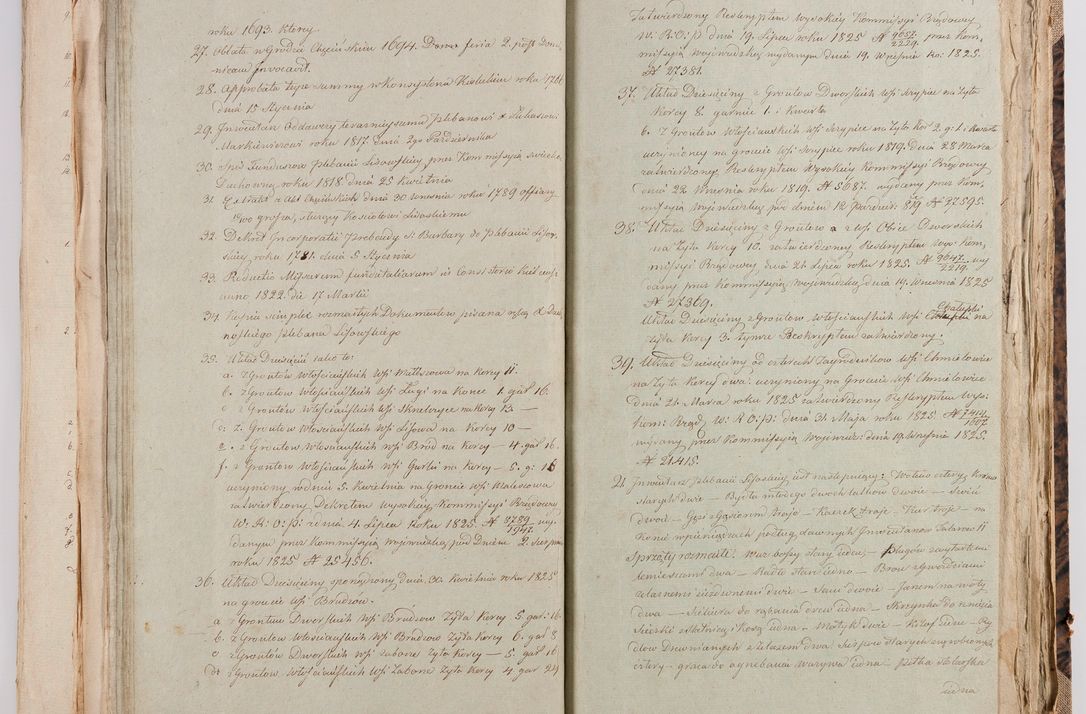 roku 1693. ktorey.
27. Oblata w Grodzie Chęcińskim 1694. feria 2. post Domi-
nicam Invocavit.
28. Approbata teyże summy w Konsystorzu Kieleckim roku 1781
dnia 15 Stycznia
29. Inwentarz Oddawczy teraznieyszemu Plebanowi X Łukaszowi
Markiewiczowi roku 1817. dnia 2go Października
30. Spis Funduszow Plebanii Lisowskiey przez Kommissyią świecko
Duchowną roku 1818. dnia 25 Kwietnia
31. Extrakt z Akt Chęcińskich dnia 30 wrzesnia roku 1789 offiary
grosza, Kościołowi Lisowskiemu
32. Dekret Incorporatii Prebendy S: Barbary do Plebanii Lisow-
skiey roku 1781. dnia 5 Stycznia
33. Reductio Missarum fundatialiarum in Consistorio
anno 1822. die 17 Martii
34. Kopia simplex rozmaitych Dokumentow pisana ręką X
Plebana Lisowskiego
35. Układ Dziesięcin iako to:
a. z Gruntow włościańskich wsi Mattszowa na Korcy 11.
b. z Gruntow włościańskich wsi Ługi na Korce 1. gar: 16.
c z Gruntow włościańskich wsi Sknelczyce na Korcy 13 —
d: z. Gruntow włościańskich wsi Lisowa na Korcy 10 —
e. z Gruntow włościańskich wsi Brud na Korcy — 4. gar 16.
f. z Gruntow włościańskich wsi Gurki na Korcy — 5. g: 16
uczyniony w dniu 5. Kwietnia na Gruncie wsi Maleszowa
zatwierdzony Dekretem wysokiey Kommissyi Rządowey
W: R: O: P: z dnia 4. Lipca roku 1825. N 3789/1947. wy-
danym przez Kommissyią Woiewodzką pod Dniem 2. Sierpnia
roku 1825 N 25456.
36. Układ Dziesięciny sporządzony dnia 30. Kwietnia roku 1825
na gruncie wsi Brudzów.
a z Gruntow Dworskich wsi Brudzow Żyta Korcy 5. gar: 16.
b. z Gruntow włościańskich wsi Brudzow Żyta Korcy 6. gar 8
c z Gruntow Dworskich wsi Zabone Żyta Korcy — 5. gar 16
d: z Gruntow włościańskich wsi Zabone Żyta Korcy 4 gar 24
Zatwierdzony Reskryptem wysokiey Kommissyi Rządowey
W: R: O: P: dnia 19. Lipca roku 1825 N 9657/2229. przez Kom-
missyią Woiewodzką wydanym dnia 19. Wrzesnia ro: 1825.
N 27381.
37. Układ Dziesięciny z Gruntow Dworskich wsi Skrzypice na Żyta
Korcy 8. garnie 1. i Kwarta
b. z Gruntow włościańskich wsi Skrzypice na Żyta Kor 2. g: 1. i Kwarta
uczynioney na gruncie wsi Skrzypice roku 1819. dnia 28 Marca
zatwierdzoney Reskryptem Wysokiey Kommissyi Rządowey
dnia 22. Wrzesnia roku 1819. N 5687. wydany przez Kom-
missyią Woiewodzką pod dniem 12 Paździer: 819 N 37595.
38. Układ Dziesięciny z Gruntow a z wsi Obice Dworskich
na Żyta Korcy 10. zatwierdzoney Reskryptem wys: Kom-
missyi Rządowey dnia 21. Lipca roku 1825. N 9647/2219. wy
dany przez Kommissyią Woiewodzką dnia 19. Wrzesnia 1825
N 27369.
Układ Dziesięciny z Gruntow włościańskich wsi na
Żyta Korcy 3. tymże Reskryptem zatwierdzony
39. Układ Dziesięciny od czterech Zagrodnikow wsi Chmielowice
na Żyta Korcy dwa. uczyniony na Gruncie wsi Chmielowice
dnia 21. Marca roku 1825 zatwierdzony Reskryptem wys:
Kom: Rząd: W: R: O: P: dnia 31. Maja roku 1825 N 7414/1607.
wydany przez Kommissyią Woiewodz: dnia 19. Wrzesnia 1825.
N 21415.
21 Inwentarz Plebanii Lisowskiey iest następuiący: Wołow cztery, Krow
starych dwie — Bydła młodego dwoch latkow dwoie — Swiń
dwoie — Gęsi z Gąsiorem troje — Kaczek troje — Kur troje — na
Konie w pieniądzach podług dawnych Inwentarzow Talarow 11
Sprzęty rozmaite. Woz bossy stary ieden — Pługow z
lemieszami dwa — Radło stare iedno — Bron z Gwoździami
żelaznemi dwie — Sani dwoie — Janem na woły
dwa — Siekiera do rąbania drew iedna — Skrzynka do rznięcia
Sieczki z Kosą iedna — Motyk dwie — Kilof ieden — Ry-
dlow Drewnianych z żelazem dwa. Sierpow starych
cztery — graca do warzywa iedna — piłka stolarska
iedna